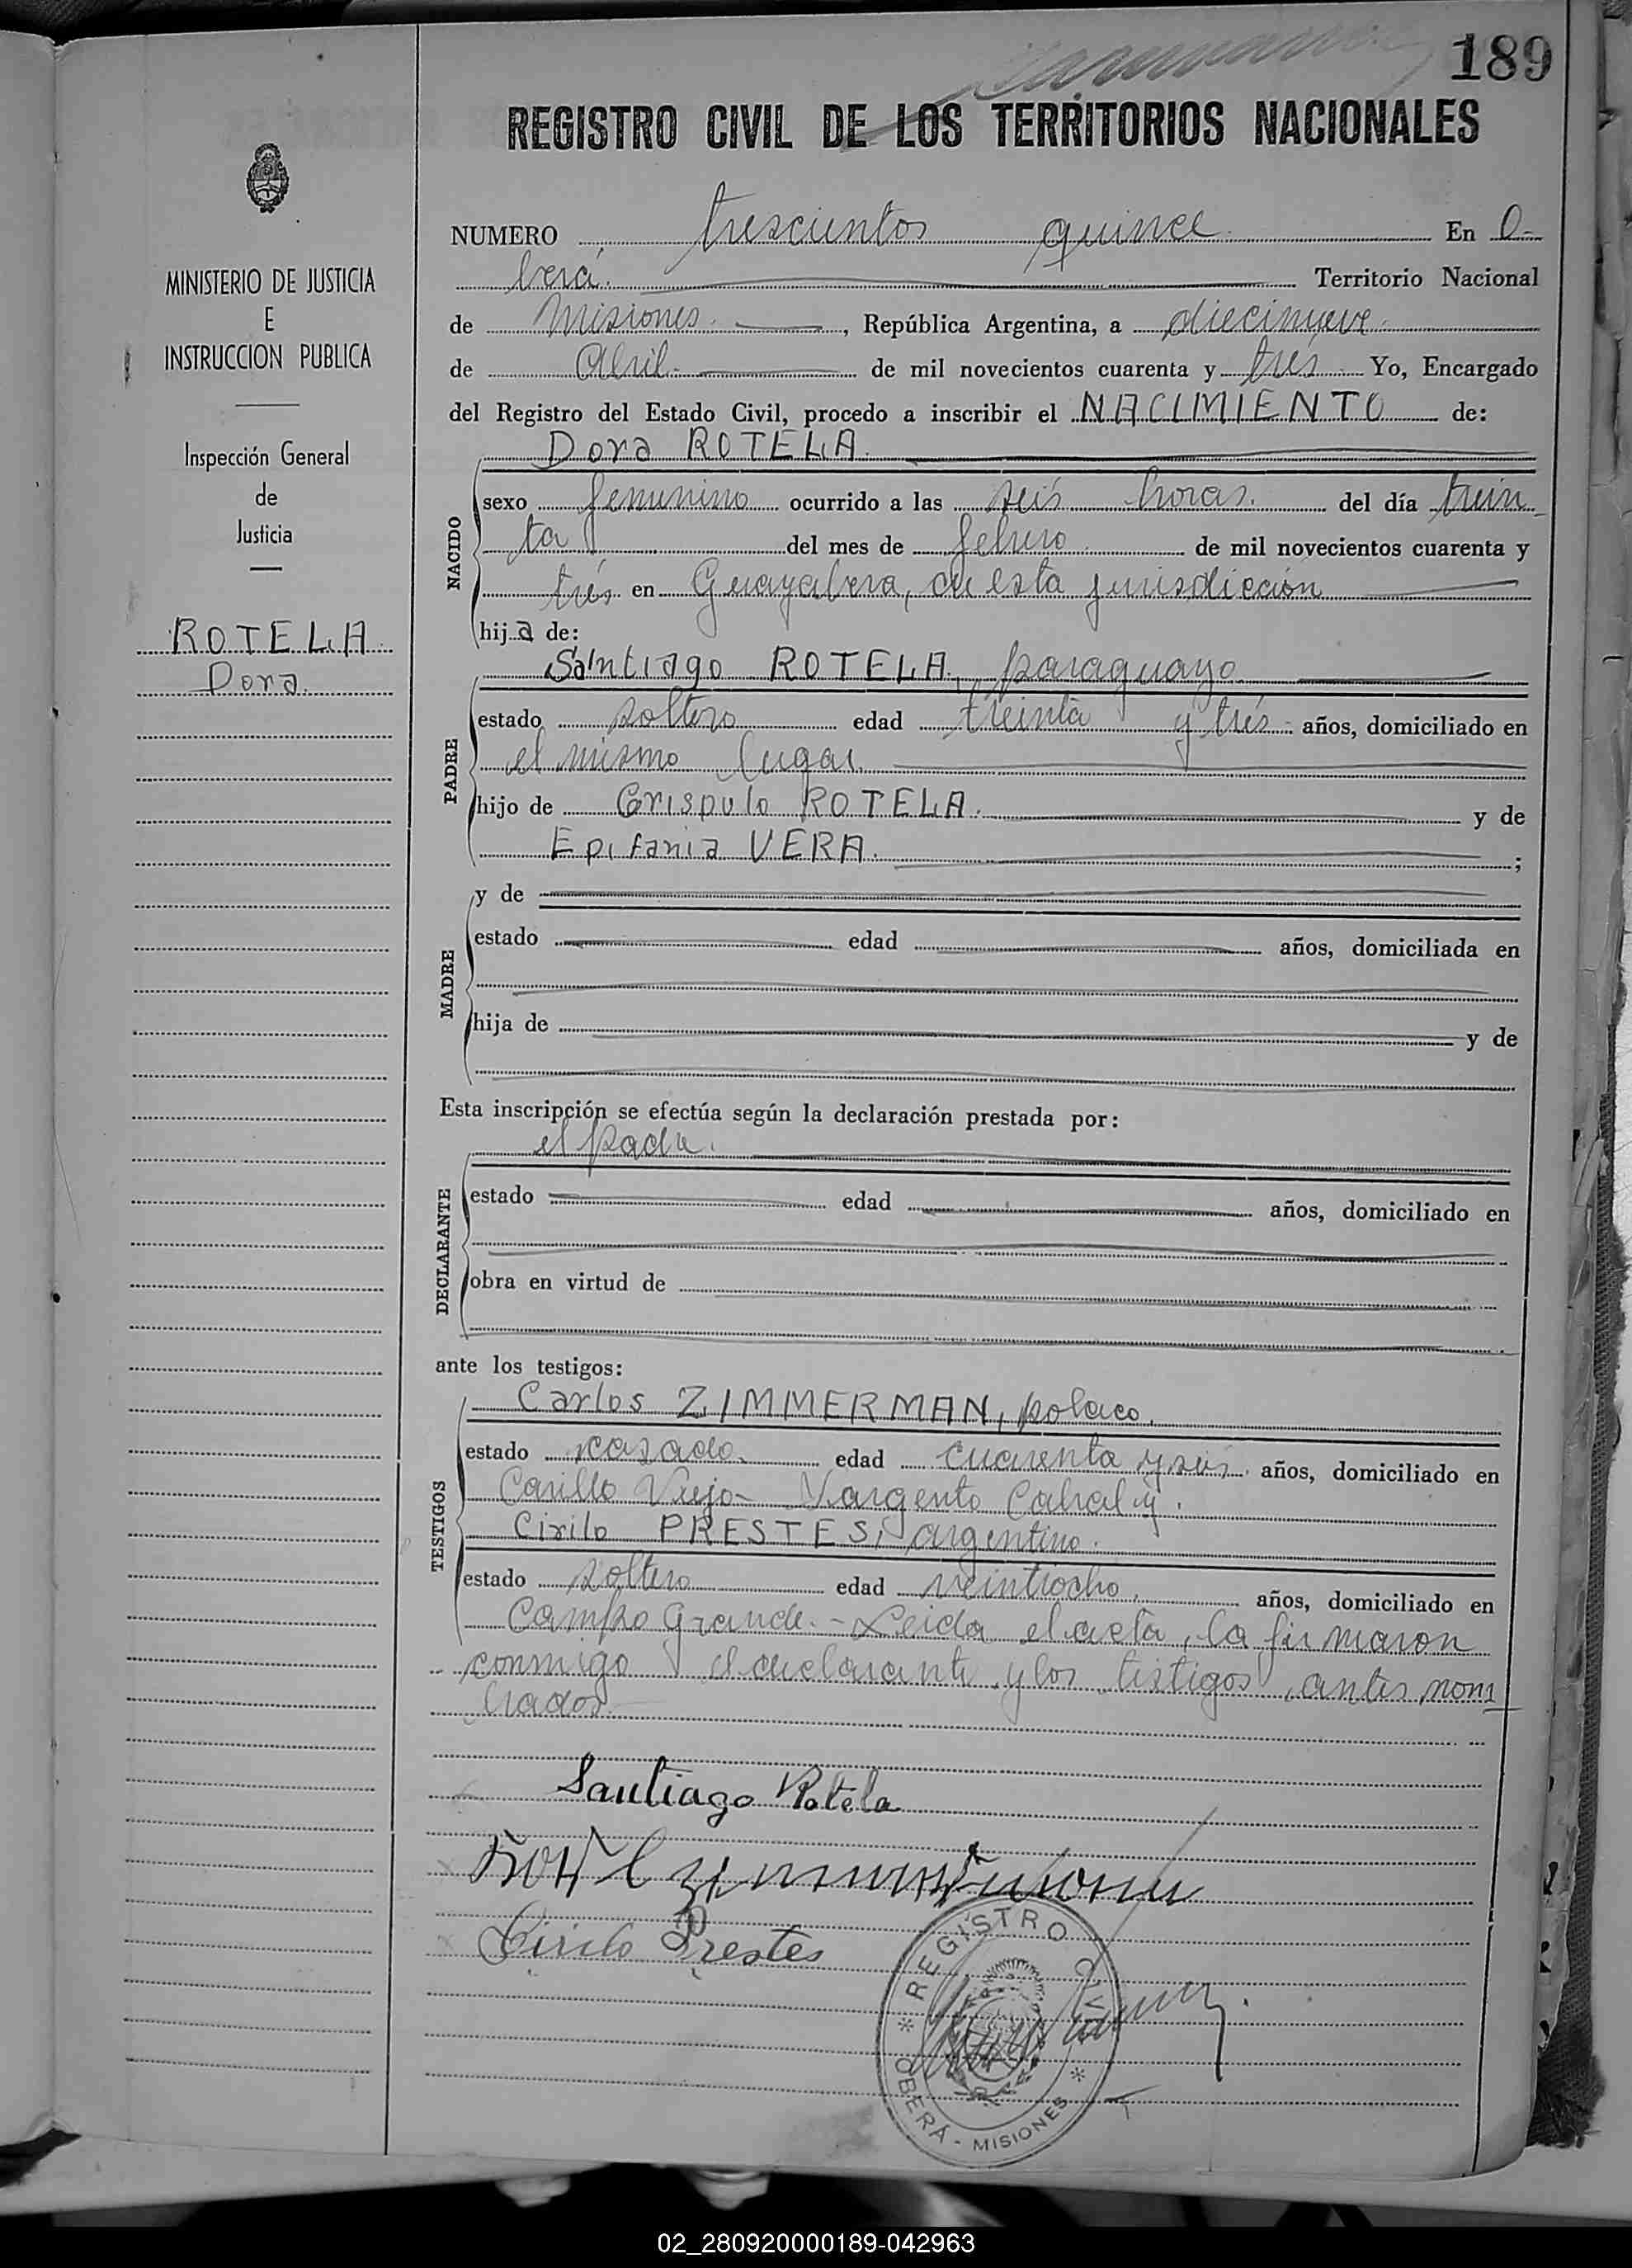 189
REGISTRO CIVIL DE LOS TERRITORIOS NACIONALES
MINISTERIO DE JUSTICIA
E
INSTRUCCION PUBLICA
Inspección General
de
Justicia
ROTELA
Dora.
NUMERO trescientos quince En O-
berá. Territorio Nacional
de Misiones. , República Argentina, a diecinueve
de Abril. de mil novecientos cuarenta y trés Yo, Encargado
del Registro del Estado Civil, procedo a inscribir el NACIMIENTO de:
Dora ROTELA.
NACIDO
sexo femenino ocurrido a las seis horas. del día trein
ta del mes de febrero de mil novecientos cuarenta y
trés en Guayabera, en esta jurisdicción
hija de:
Santiago ROTELA, paraguayo
PADRE
estado soltero edad treinta y trés años, domiciliado en
el mismo lugar.
hijo de Crispulo ROTELA. y de
Epifania VERA. ;
y de
MADRE
estado edad años, domiciliada en
hija de y de
Esta inscripción se efectúa según la declaración prestada por:
el padre.
DECLARANTE
estado edad años, domiciliado en
obra en virtud de
ante los testigos:
Carlos ZIMMERMAN, polaco.
TESTIGOS
estado casado. edad cuarenta y seis años, domiciliado en
Carillo Viejo- Sargento Cabral y.
Cirilo PRESTES, argentino.
estado soltero edad veintiocho, años, domiciliado en
Campo Grande.- Leida el acta, la firmaron
conmigo el declarante y los testigos, antes nom
brados.
Santiago Rotela
Cirilo Prestes
REGISTRO CIVIL
OBERÁ - MISIONES
02_280920000189-042963